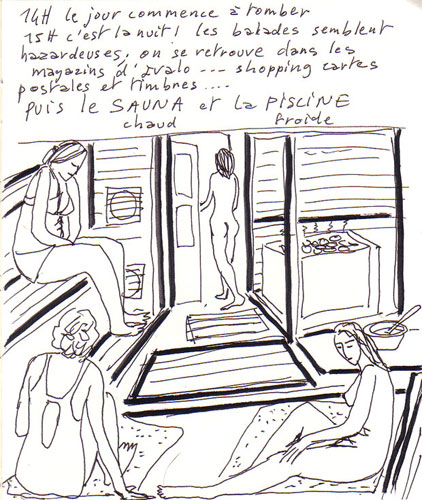 14H le jour commence à tomber
15H c'est la nuit! les balades semblent
hazardeuses, on se retrouve dans les
magazins d'Ivalo --- shopping cartes
postales et timbres ....
puis le SAUNA et la PISCINE
chaud froide